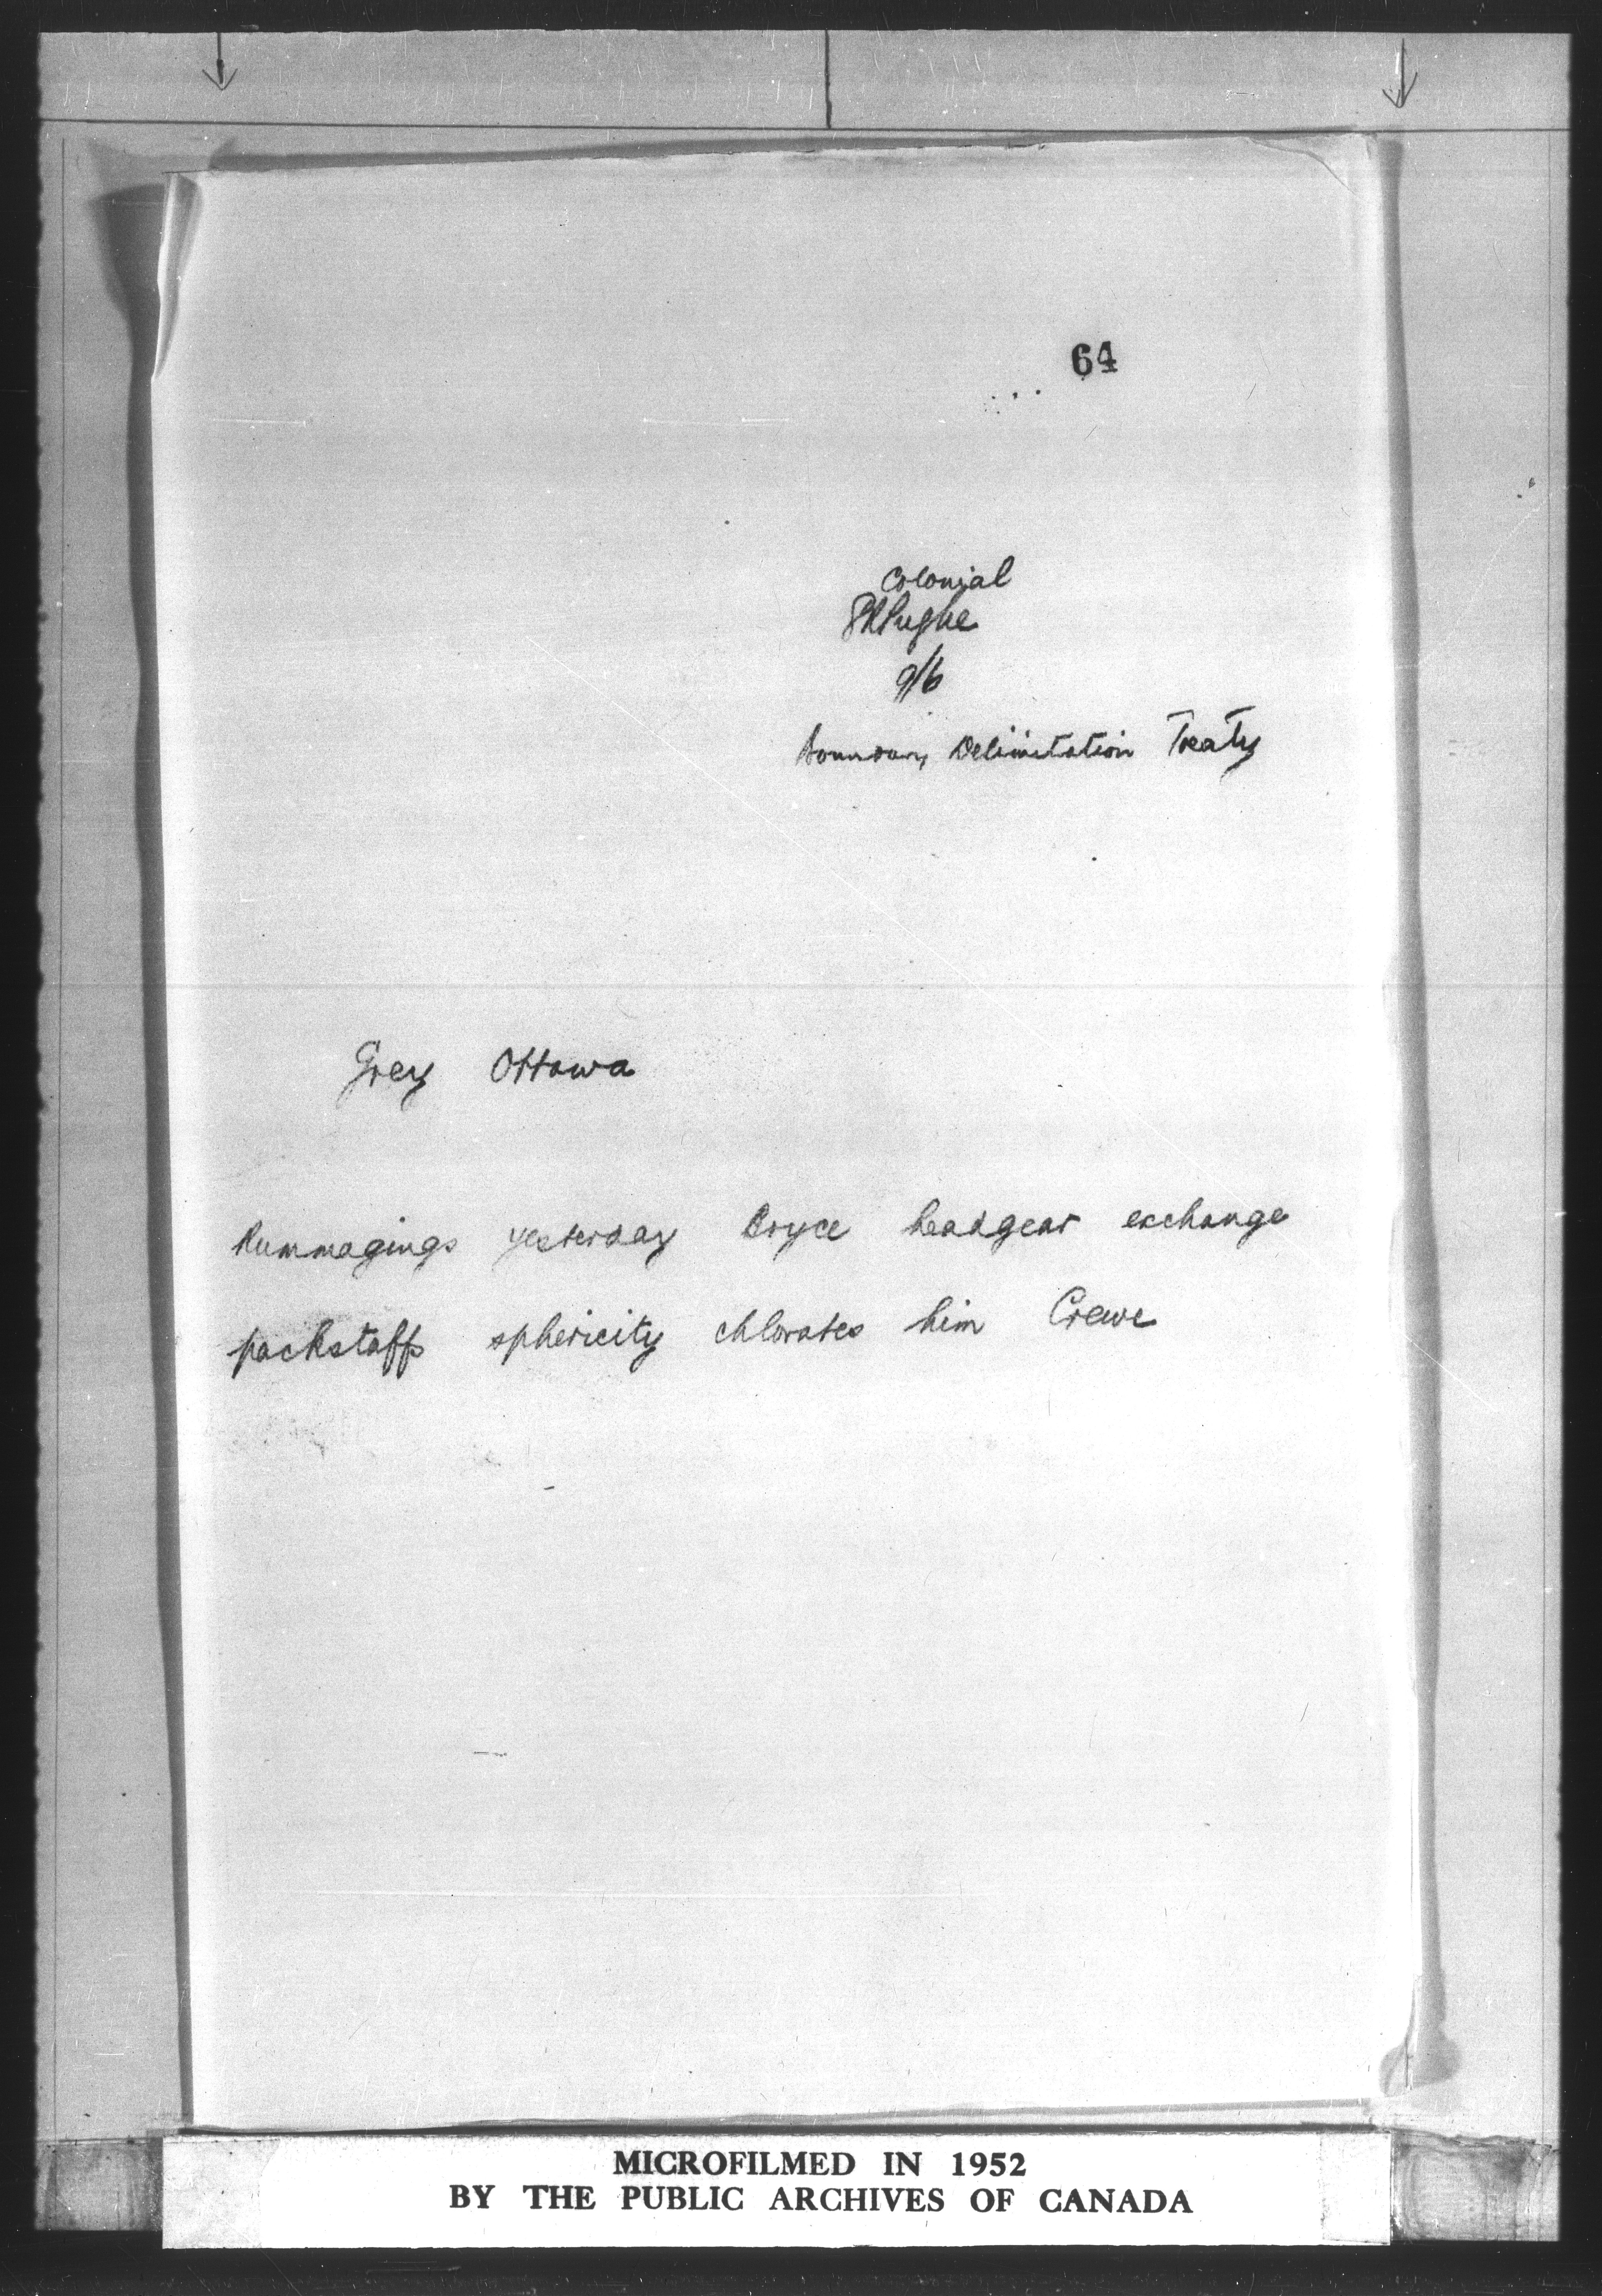 64
Colonial
9/6
Boundary Delimitation Treaty
Grey Ottawa
Rummagings yesterday Bryce headgear exchange
packstaff sphericity chlorates him Crewe
MICROFILMED IN 1952
BY THE PUBLIC ARCHIVES OF CANADA